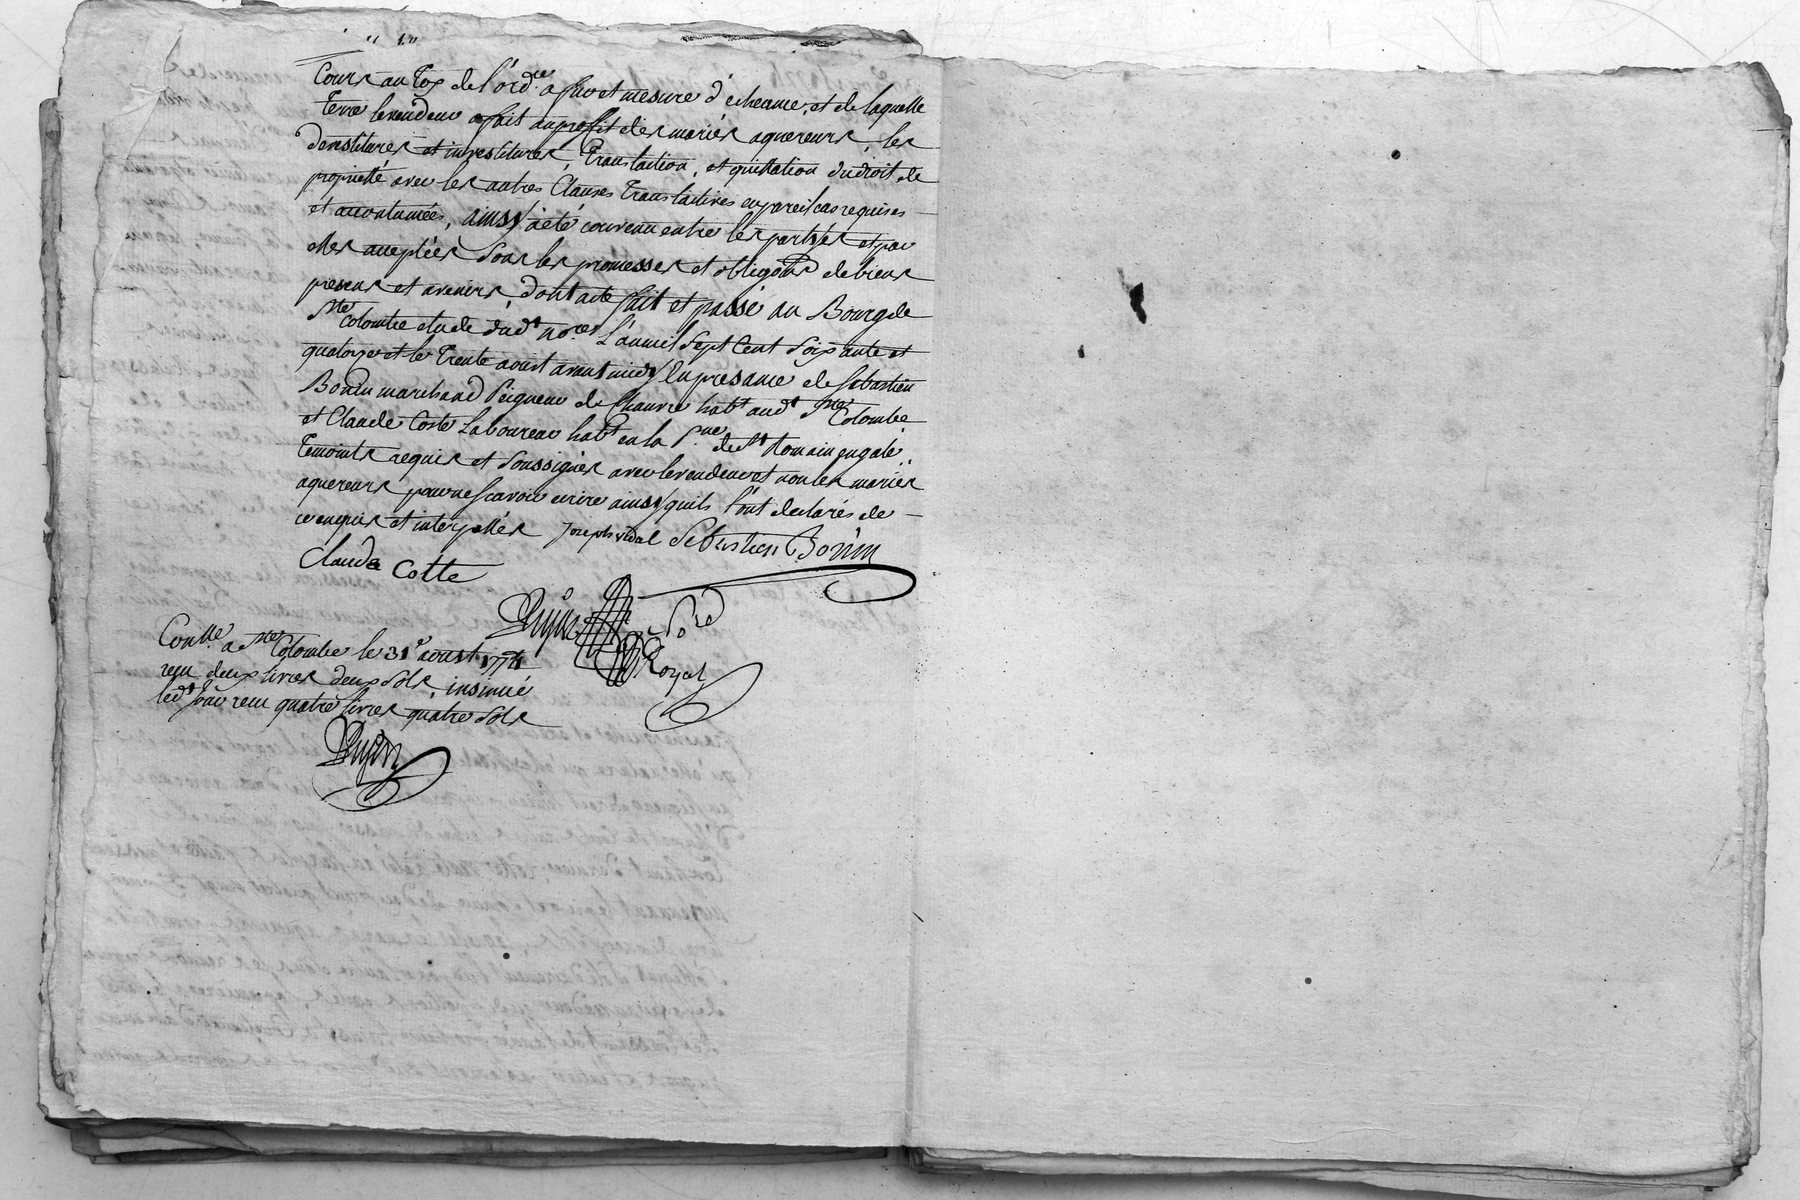 Cours au tox de l'ord.re a fur et mesure d'écheance, et de laquelle
Terre le vendeur a fait au proffit des mariés aquereurs, les
devestitures et investitures, Translation, et quittation du droit de
proprieté avec les autres Clauses Translatives en pareil cas requises
et accoutumées, ainsy a eté convenu entre les parties et par
elles acceptées sous les promesses et obligaõns de biens
presens et avenirs, dont acte fait et passé au Bourg de
Ste Colombe etude dudt nore. L'an mil sept Cent soixante et
quatorze et le Trente aoust avant midy En presance de Sebastien
Bonin marchand Peigneur de Chanvre habt audt Ste Colombe
et Claude Coste Laboureur habt en la Psse de St Romain
Temoints requis et soussignés avec le vendeur et non les mariés
aquereurs pour ne scavoir ecrire ainsy quils l'ont declarés de
ce enquis et interpellés Joseph vidal Sebastien Bonin
Claude Cotte
Royal
Conllé. a Ste Colombe le 31e aoust 1774
reçu deux livres deux sols, insinué
ledt jour reçu quatre livres quatre sols